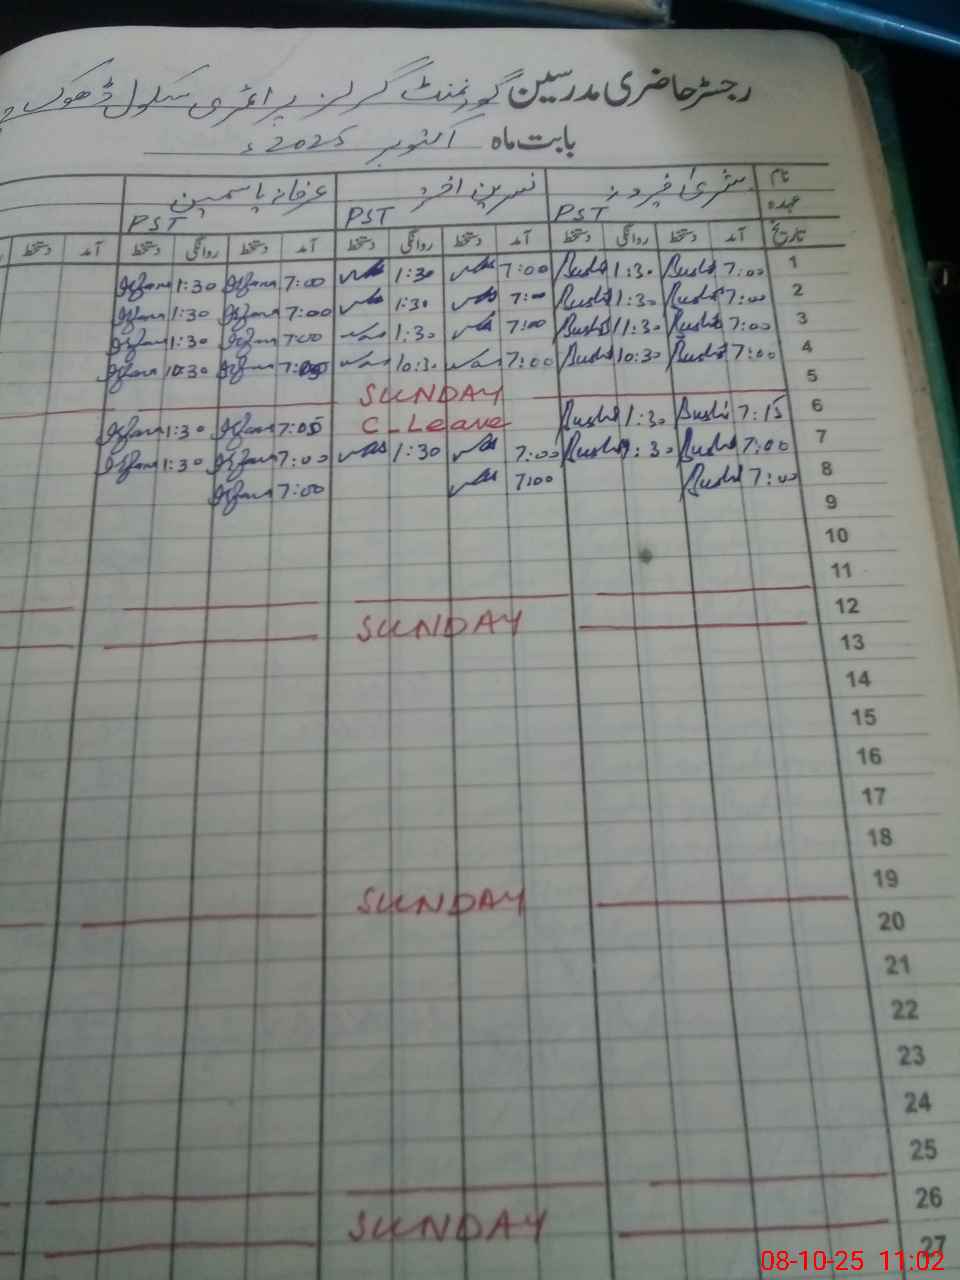 رجسٹر حاضری مدرسین گورنمنٹ گرلز پرائمری سکول ڈھوک
بابت ماہ اکتوبر 2025ء
نام بشریٰ فیروز نسرین اختر عرفانہ یاسمین
عہدہ PST PST PST
تاریخ آمد دستخط روانگی دستخط آمد دستخط روانگی دستخط آمد دستخط روانگی دستخط آمد دستخط
1 7:00 Bushra 1:30 Bushra 7:00 1:30 7:00 Irfana 1:30 Irfana
2 7:00 Bushra 1:30 Bushra 7:00 1:30 7:00 Irfana 1:30 Irfana
3 7:00 Bushra 11:30 Bushra 7:00 1:30 7:00 Irfana 1:30 Irfana
4 7:00 Bushra 10:30 Bushra 7:00 10:30 Irfana 10:30 Irfana
5 SUNDAY
6 7:15 Bushra 1:30 Bushra C-Leave 7:05 Irfana 1:30 Irfana
7 7:00 Bushra 1:30 Bushra 7:00 1:30 7:00 Irfana 1:30 Irfana
8 7:00 Bushra 7:00 7:00 Irfana
9
10
11
12 SUNDAY
13
14
15
16
17
18
19 SUNDAY
20
21
22
23
24
25
26 SUNDAY
27
08-10-25 11:02